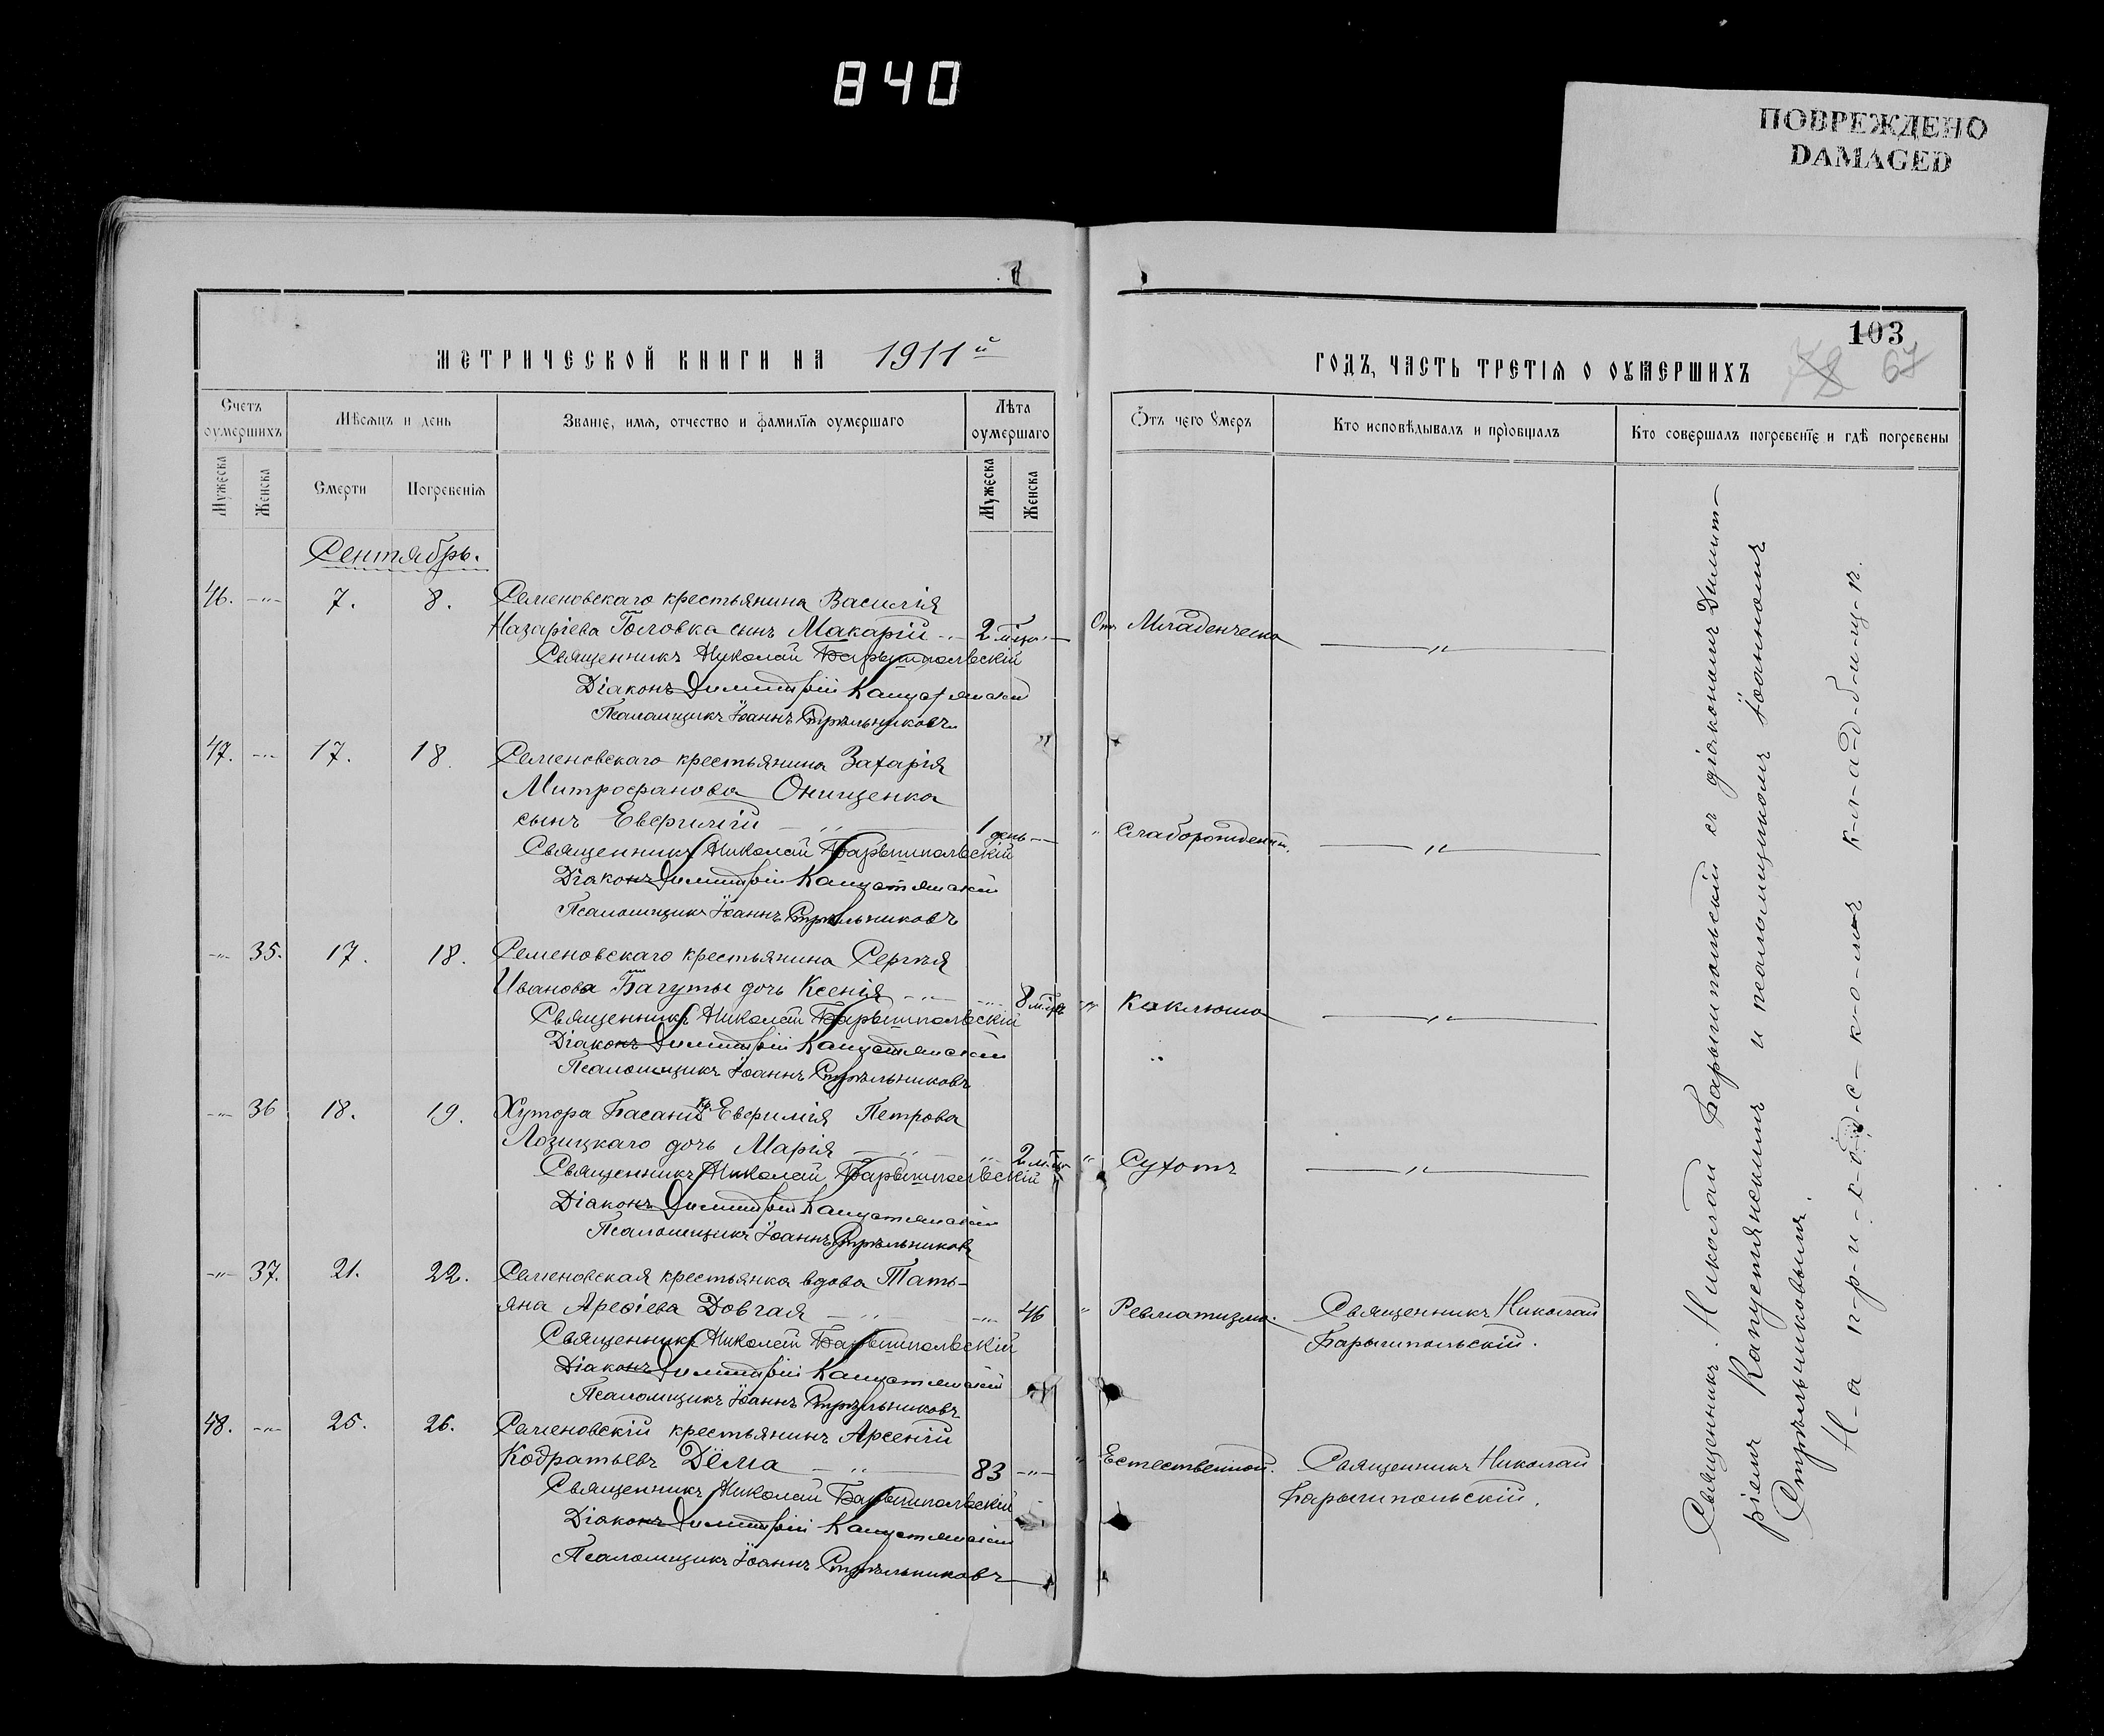 840
ПОВРЕЖДЕНО
DAMAGED
МЕТРИЧЕСКОЙ КНИГИ НА 1911й
ГОДЪ, ЧАСТЬ ТРЕТІЯ О ОУМЕРШИХЪ
103
67
Счетъ оумершихъ
Мѣсяцъ и день
Званіе, имя, отчество и фамилія оумершаго
Лѣта оумершаго
Отъ чего умеръ
Кто исповѣдывалъ и пріобщалъ
Кто совершалъ погребеніе и гдѣ погребены
Мужеска
Женска
Смерти
Погребенія
Мужеска
Женска
Сентябрь.
46. -"- 7. 8. Семеновскаго крестьянина Василія
Назаріева Головка сынъ Макарій -"- 2 мѣс. — Отъ Младенческ. —"—
Священникъ Николай Барышпольскій
Діаконъ Димитрій Капустянскій
Псаломщикъ Іоаннъ Стрѣльниковъ
47. -"- 17. 18. Семеновскаго крестьянина Захарія
Митрофанова Онищенка
сынъ Евфимій —"— 1 день — " Слаборожденій. —"—
Священникъ Николай Барышпольскій
Діаконъ Димитрій Капустянскій
Псаломщикъ Іоаннъ Стрѣльниковъ
-"- 35. 17. 18. Семеновскаго крестьянина Сергѣя
Иванова Багуты дочь Ксенія -"- -"- 8 мѣс. " Коклюша —"—
Священникъ Николай Барышпольскій
Діаконъ Димитрій Капустянскій
Псаломщикъ Іоаннъ Стрѣльниковъ
-"- 36 18. 19. Хутора Басани кр. Евфимія Петрова
Лозицкаго дочь Марія —"— -"- 2 мѣс. " Сухотъ —"—
Священникъ Николай Барышпольскій
Діаконъ Димитрій Капустянскій
Псаломщикъ Іоаннъ Стрѣльниковъ
-"- 37. 21. 22. Семеновская крестьянка вдова Тать-
яна Арефіева Довгая —"— -"- 46 " Ревматизма. Священникъ Николай
Барышпольскій.
Священникъ Николай Барышпольскій
Діаконъ Димитрій Капустянскій
Псаломщикъ Іоаннъ Стрѣльниковъ
48. -"- 25. 26. Семеновскій крестьянинъ Арсеній
Кодратьевъ Дёма —"— 83 -"- " Естественной. Священникъ Николай
Барышпольскій.
Священникъ Николай Барышпольскій
Діаконъ Димитрій Капустянскій
Псаломщикъ Іоаннъ Стрѣльниковъ
Священникъ Николай Барышпольскій съ діакономъ Димит-
ріемъ Капустянскимъ и псаломщикомъ Іоанномъ
Стрѣльниковымъ.
Н-а п-р-и-х-о-д-с-к-о-мъ к-л-а-д-б-и-щ-ѣ.